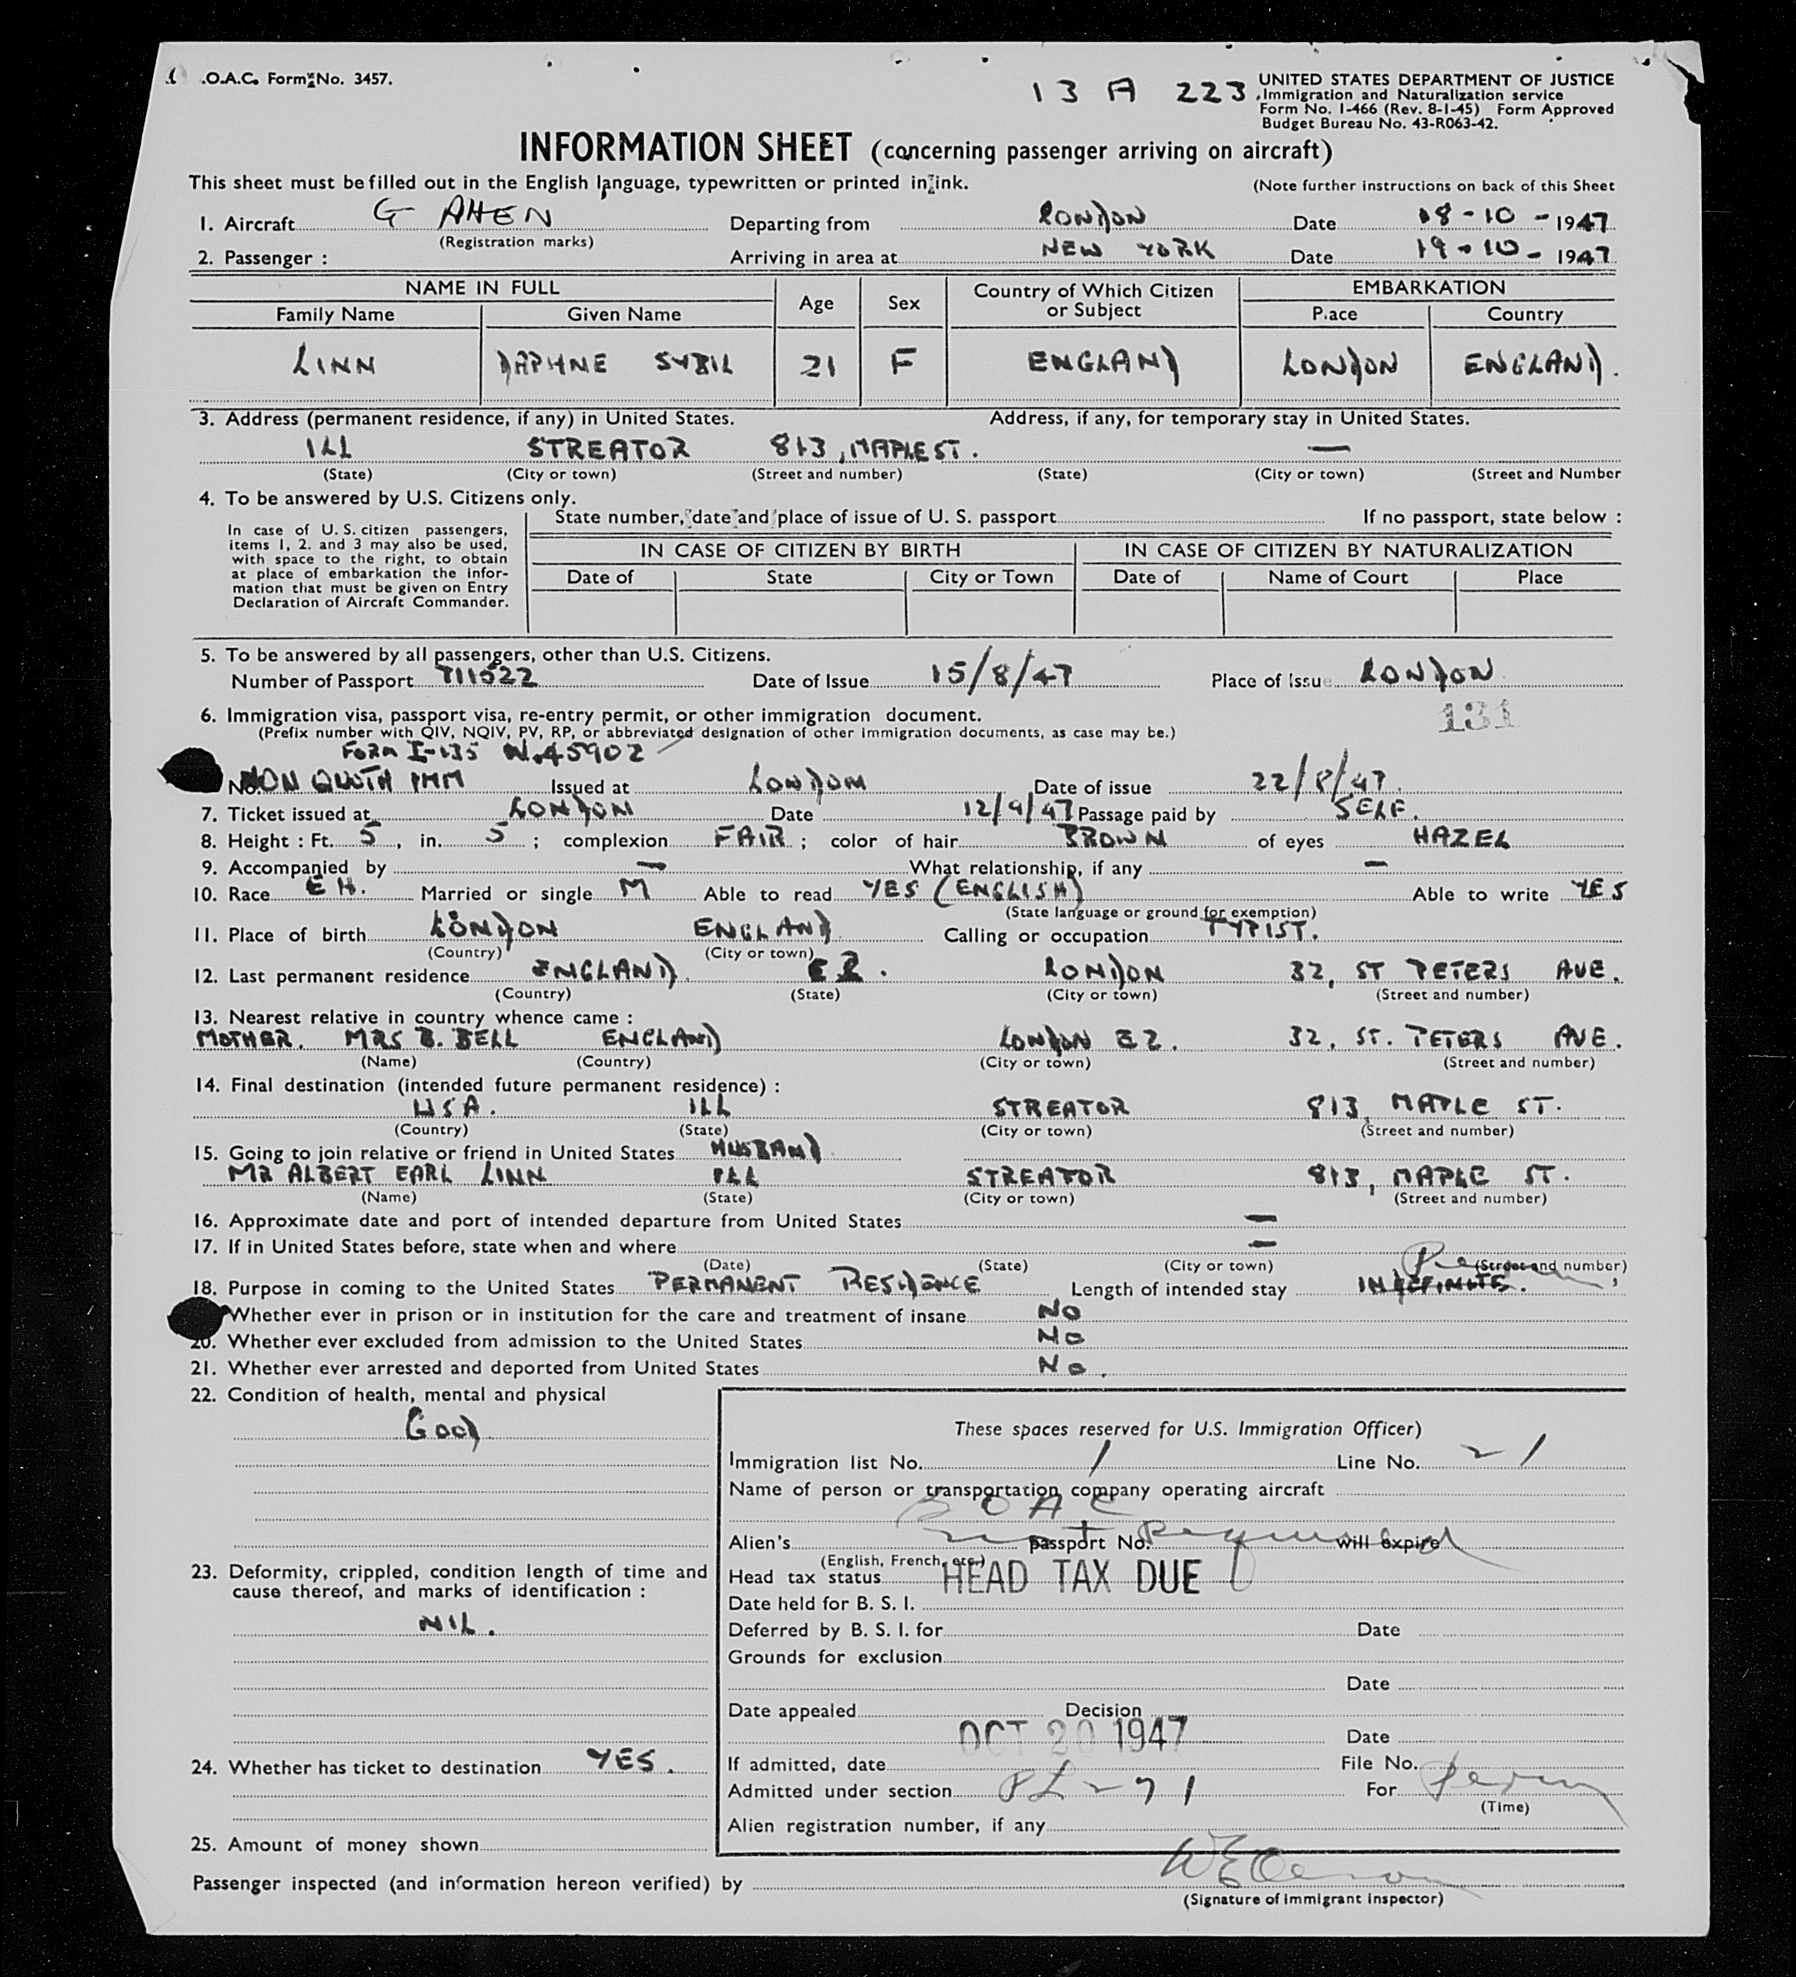 .O.A.C. Form No. 3457.
13 A 223
UNITED STATES DEPARTMENT OF JUSTICE
Immigration and Naturalization service
Form No. I-466 (Rev. 8-1-45) Form Approved
Budget Bureau No. 43-R063-42.
INFORMATION SHEET (concerning passenger arriving on aircraft)
This sheet must be filled out in the English language, typewritten or printed in ink.
(Note further instructions on back of this Sheet
1. Aircraft G AHEN Departing from LONDON Date 18-10-1947
(Registration marks)
2. Passenger : Arriving in area at NEW YORK Date 19-10-1947
NAME IN FULL Age Sex Country of Which Citizen or Subject EMBARKATION
Family Name Given Name Place Country
LINN DAPHNE SYBIL 21 F ENGLAND LONDON ENGLAND.
3. Address (permanent residence, if any) in United States. Address, if any, for temporary stay in United States.
ILL STREATOR 813, MAPLE ST. —
(State) (City or town) (Street and number) (State) (City or town) (Street and Number
4. To be answered by U.S. Citizens only.
In case of U. S. citizen passengers, items 1, 2. and 3 may also be used, with space to the right, to obtain at place of embarkation the information that must be given on Entry Declaration of Aircraft Commander.
State number, date and place of issue of U. S. passport If no passport, state below :
IN CASE OF CITIZEN BY BIRTH IN CASE OF CITIZEN BY NATURALIZATION
Date of State City or Town Date of Name of Court Place
5. To be answered by all passengers, other than U.S. Citizens.
Number of Passport 711522 Date of Issue 15/8/47 Place of Issue LONDON
131
6. Immigration visa, passport visa, re-entry permit, or other immigration document.
(Prefix number with QIV, NQIV, PV, RP, or abbreviated designation of other immigration documents, as case may be.)
FORM I-135 No. 45902
No. NON QUOTA IMM Issued at LONDON Date of issue 22/8/47.
7. Ticket issued at LONDON Date 12/9/47 Passage paid by SELF.
8. Height : Ft. 5, in. 5 ; complexion FAIR ; color of hair BROWN of eyes HAZEL
9. Accompanied by — What relationship, if any —
10. Race EH. Married or single M Able to read YES (ENGLISH) Able to write YES
(State language or ground for exemption)
11. Place of birth LONDON ENGLAND Calling or occupation TYPIST.
(Country) (City or town)
12. Last permanent residence ENGLAND. E2. LONDON 32, ST PETERS AVE.
(Country) (State) (City or town) (Street and number)
13. Nearest relative in country whence came :
MOTHER. MRS B. BELL ENGLAND LONDON E2. 32, ST. PETERS AVE.
(Name) (Country) (City or town) (Street and number)
14. Final destination (intended future permanent residence) :
USA. ILL STREATOR 813, MAPLE ST.
(Country) (State) (City or town) (Street and number)
15. Going to join relative or friend in United States HUSBAND
MR ALBERT EARL LINN ILL STREATOR 813, MAPLE ST.
(Name) (State) (City or town) (Street and number)
16. Approximate date and port of intended departure from United States —
17. If in United States before, state when and where —
(Date) (State) (City or town) (Street and number)
18. Purpose in coming to the United States PERMANENT RESIDENCE Length of intended stay INDEFINITE.
Whether ever in prison or in institution for the care and treatment of insane NO
20. Whether ever excluded from admission to the United States NO
21. Whether ever arrested and deported from United States NO.
22. Condition of health, mental and physical
GOOD
These spaces reserved for U.S. Immigration Officer)
Immigration list No. 1 Line No. 21
Name of person or transportation company operating aircraft
BOAC
Alien's not Required passport No. will expire
(English, French, etc.)
23. Deformity, crippled, condition length of time and cause thereof, and marks of identification :
NIL.
Head tax status HEAD TAX DUE
Date held for B. S. I.
Deferred by B. S. I. for Date
Grounds for exclusion
Date
Date appealed Decision
OCT 20 1947 Date
24. Whether has ticket to destination YES.
If admitted, date File No.
Admitted under section PL 271 For Perm
(Time)
Alien registration number, if any
25. Amount of money shown
Passenger inspected (and information hereon verified) by
(Signature of immigrant inspector)